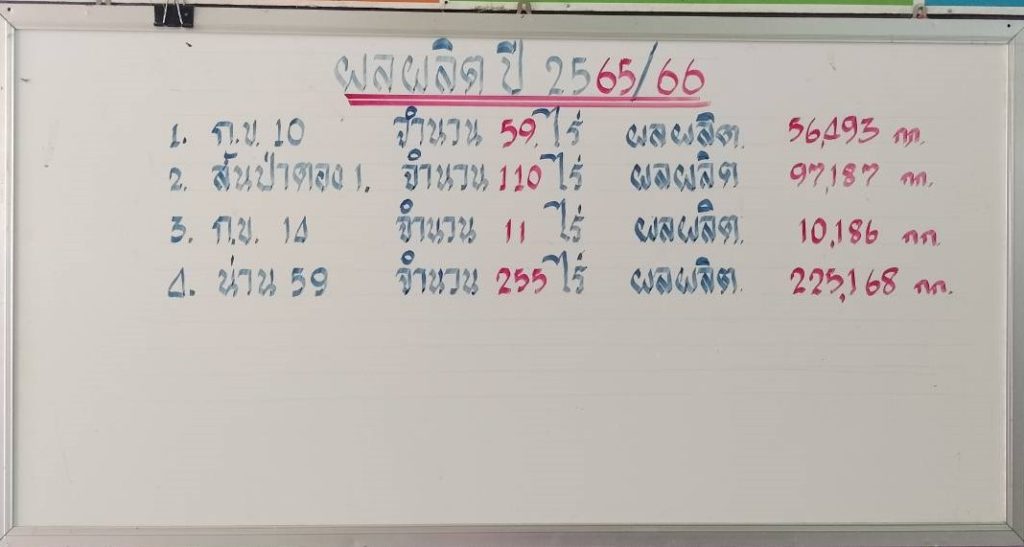 ผลผลิต ปี 2565/66
1. ก.ข. 10 จำนวน 59 ไร่ ผลผลิต. 56,493 กก.
2. สันป่าตอง 1. จำนวน 110 ไร่ ผลผลิต 97,187 กก.
3. ก.ข. 14 จำนวน 11 ไร่ ผลผลิต. 10,186 กก.
4. น่าน 59 จำนวน 255 ไร่ ผลผลิต. 225,168 กก.